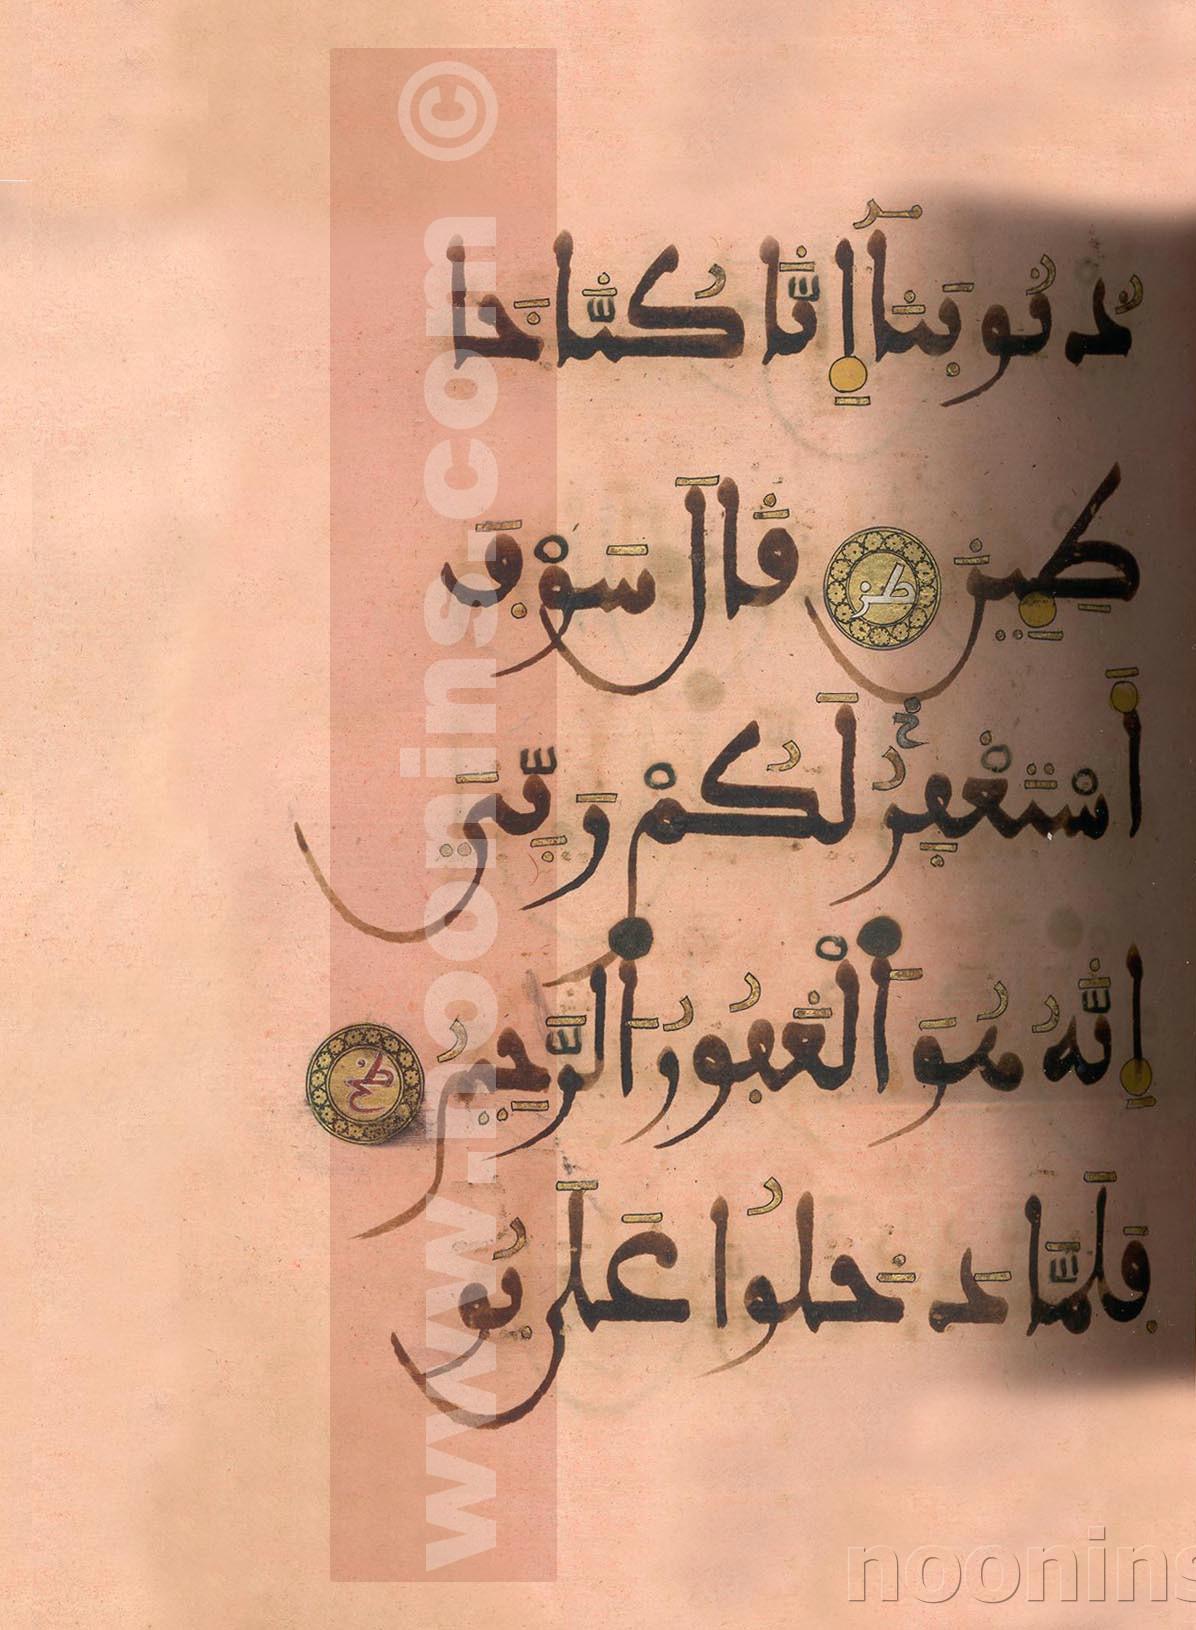 ذُنُوبَنَآ إِنَّا كُنَّا خَا
طِـِٔينَ طز قَالَ سَوْفَ
أَسْتَغْفِرُ لَكُمْ رَبِّيَ
إِنَّهُ هُوَ اَلْغَفُورُ اُلرَّحِيمُ طح
فَلَمَّا دَخَلُوا عَلَى يُو
www-noonins-com ©
noonins